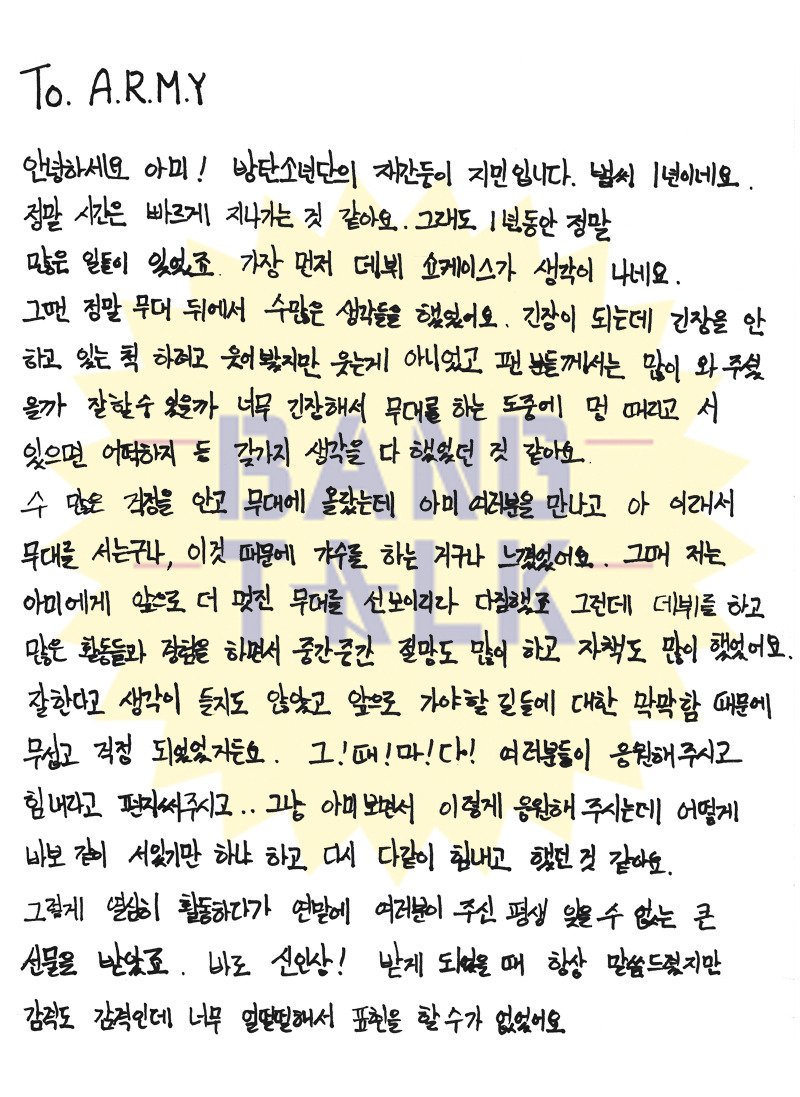 To. A.R.M.Y
안녕하세요 아미! 방탄소년단의 재간둥이 지민입니다. 벌써 1년이네요.
정말 시간은 빠르게 지나가는 것 같아요. 그래도 1년동안 정말
많은 일들이 있었죠. 가장 먼저 데뷔 쇼케이스가 생각이 나네요.
그땐 정말 무대 뒤에서 수많은 생각들을 했었어요. 긴장이 되는데 긴장을 안
하고 있는 척 하려고 웃어봤지만 웃는게 아니었고 팬분들께서는 많이 와주셨
을까 잘할수 있을까 너무 긴장해서 무대를 하는 도중에 멍 때리고 서
있으면 어떡하지 등 갖가지 생각을 다 했었던 것 같아요.
수 많은 걱정을 안고 무대에 올랐는데 아미 여러분을 만나고 아 이래서
무대를 서는구나, 이것 때문에 가수를 하는 거구나 느꼈었어요. 그때 저는
아미에게 앞으로 더 멋진 무대를 선보이리라 다짐했죠 그런데 데뷔를 하고
많은 활동들과 경험을 하면서 중간중간 절망도 많이 하고 자책도 많이 했었어요.
잘한다고 생각이 들지도 않았고 앞으로 가야할 길들에 대한 막막함 때문에
무섭고 걱정 되었었거든요. 그!때!마!다! 여러분들이 응원해주시고
힘내라고 편지써주시고.. 그냥 아미보면서 이렇게 응원해 주시는데 어떻게
바보 같이 서있기만 하냐 하고 다시 다같이 힘내고 했던것 같아요.
그렇게 열심히 활동하다가 연말에 여러분이 주신 평생 잊을 수 없는 큰
선물을 받았죠. 바로 신인상! 받게 되었을 때 항상 말씀드렸지만
감격도 감격인데 너무 얼떨떨해서 표현을 할수가 없었어요
BANG
TALK